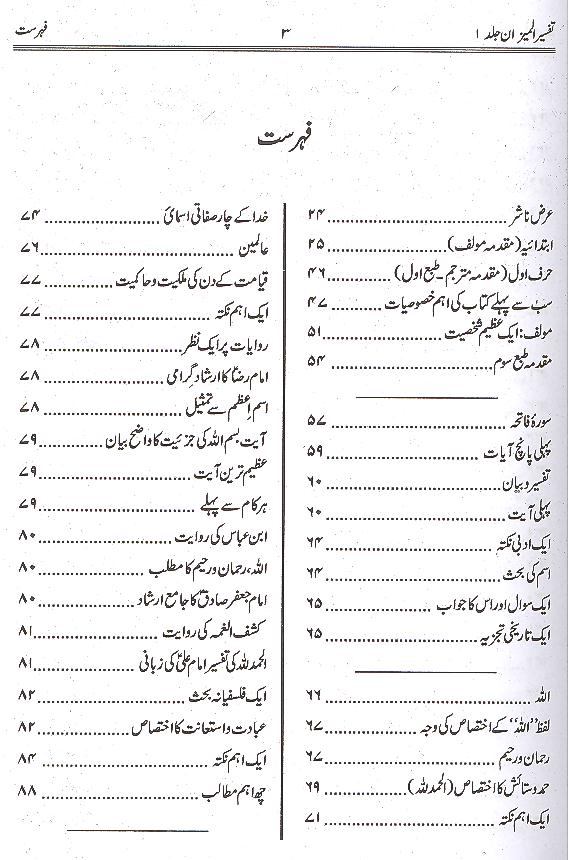 تفسیر المیزان جلد ۱
۳
فہرست
فہرست
عرض ناشر ۲۴
ابتدائیہ (مقدمہ مولف) ۲۵
حرف اول (مقدمہ مترجم۔ طبع اول) ۴۶
سب سے پہلے کتاب کی اہم خصوصیات ۴۷
مولف: ایک عظیم شخصیت ۵۱
مقدمہ طبع سوم ۵۴
سورۂ فاتحہ ۵۷
پہلی پانچ آیات ۵۹
تفسیر و بیان ۶۰
پہلی آیت ۶۰
ایک ادبی نکتہ ۶۴
اسم کی بحث ۶۴
ایک سوال اور اس کا جواب ۶۵
ایک تاریخی تجزیہ ۶۵
اللہ ۶۶
لفظ "اللہ" کے اختصاص کی وجہ ۶۷
رحمان و رحیم ۶۷
حمد و ستائش کا اختصاص (الحمد للہ) ۶۹
ایک اہم نکتہ ۷۱
خدا کے چار صفاتی اسمائ ۷۴
عالمین ۷۶
قیامت کے دن کی ملکیت و حاکمیت ۷۷
ایک اہم نکتہ ۷۷
روایات پر ایک نظر ۷۸
امام رضاؑ کا ارشاد گرامی ۷۸
اسم اعظم سے تمثیل ۷۸
آیت بسم اللہ کی جزئیت کا واضح بیان ۷۹
عظیم ترین آیت ۷۹
ہر کام سے پہلے ۷۹
ابن عباس کی روایت ۸۰
اللہ، رحمان و رحیم کا مطلب ۸۰
امام جعفر صادقؑ کا جامع ارشاد ۸۰
کشف الغمہ کی روایت ۸۱
الحمد للہ کی تفسیر امام علیؑ کی زبانی ۸۱
ایک فلسفیانہ بحث ۸۲
عبادت و استعانت کا اختصاص ۸۲
ایک اہم نکتہ ۸۴
چھ اہم مطالب ۸۸